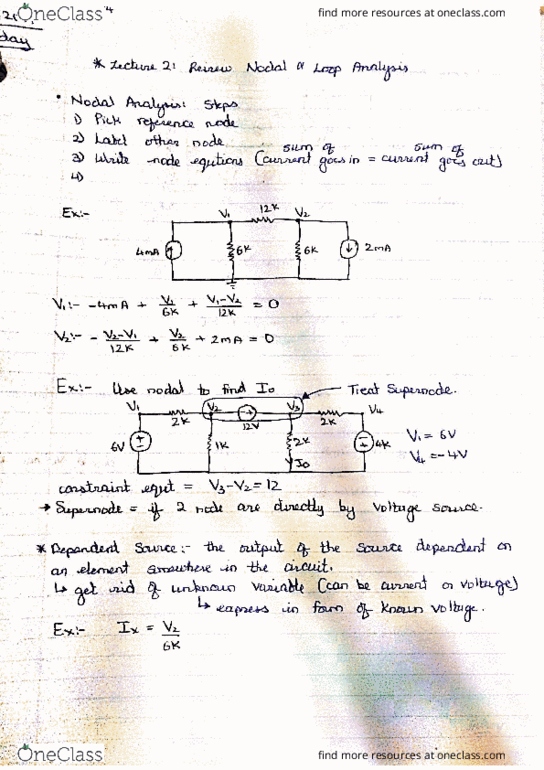 OneClass
find more resources at oneclass.com
day
* Lecture 2: Review Nodal & Loop Analysis
• Nodal Analysis: Steps
1) Pick reference node
2) Label other node
sum of sum of
3) Write node equtions (current goes in = current goes out)
4)
Ex:-
V₁ 12K V₂
4mA 6K 6K 2mA
V₁:- -4mA + V₁/6K + (V₁-V₂)/12K = 0
V₂:- - (V₂-V₁)/12K + V₂/6K + 2mA = 0
Ex:- Use nodal to find Io Treat Supernode.
V₁ 2K V₂ 12V V₃ 2K V₄
6V 1K 2K Io 4K
V₁ = 6V
V₄ = -4V
constraint equt = V₃-V₂ = 12
→ Supernode = if 2 node are directly by voltage source.
* Dependent Source:- the output of the source dependent on
an element anywhere in the circuit.
↳ get rid of unknown variable (can be current or voltage)
↳ express in form of known voltage.
Ex:- Ix = V₂/6K
OneClass
find more resources at oneclass.com